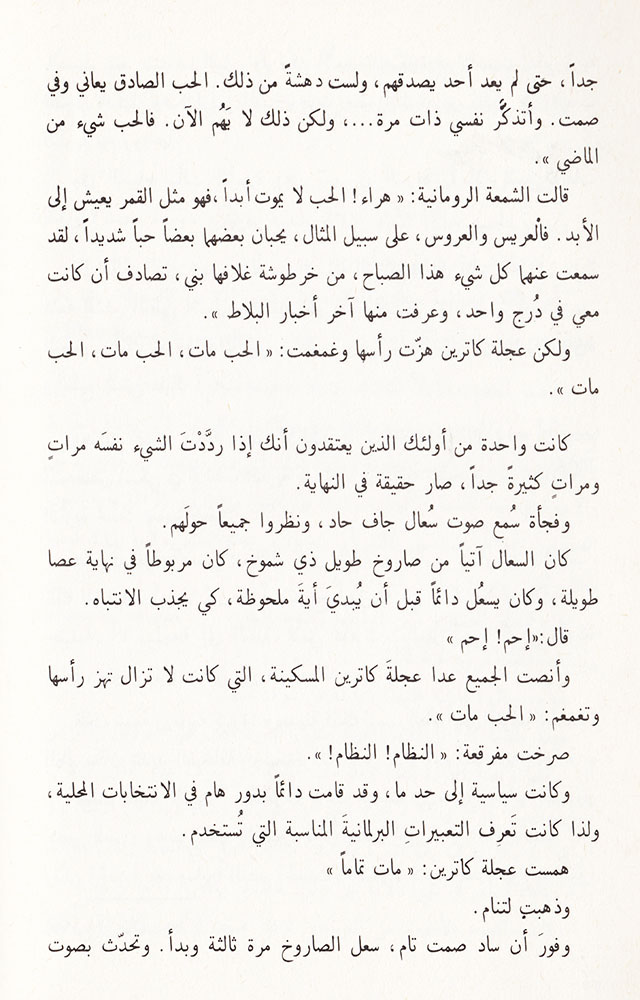 جداً، حتى لم يعد أحد يصدقهم، ولست دهشةً من ذلك. الحب الصادق يعاني وفي
صمت. وأتذكَّر نفسي ذات مرة...، ولكن ذلك لا يَهُم الآن. فالحب شيء من
الماضي ».
قالت الشمعة الرومانية: « هراء! الحب لا يموت أبداً، فهو مثل القمر يعيش إلى
الأبد. فاْلعريس والعروس، على سبيل المثال، يحبان بعضهما بعضاً حباً شديداً، لقد
سمعت عنهما كل شيء هذا الصباح، من خرطوشة غلافها بني، تصادف أن كانت
معي في دُرج واحد، وعرفت منها آخر أخبار البلاط ».
ولكن عجلة كاترين هزّت رأسها وغمغمت: « الحب مات، الحب مات، الحب
مات ».
كانت واحدة من أولئك الذين يعتقدون أنك إذا ردَّدْتَ الشيء نفسَه مراتٍ
ومراتٍ كثيرةً جداً، صار حقيقة في النهاية.
وفجأة سُمع صوت سُعال جاف حاد، ونظروا جميعاً حولَهم.
كان السعال آتياً من صاروخ طويل ذي شموخ، كان مربوطاً في نهاية عصا
طويلة، وكان يسعُل دائماً قبل أن يُبديَ أيةَ ملحوظة، كي يجذب الانتباه.
قال:«إحم! إحم »
وأنصت الجميع عدا عجلةَ كاترين المسكينة، التي كانت لا تزال تهز رأسها
وتغمغم: « الحب مات ».
صرخت مفرقعة: « النظام! النظام! ».
وكانت سياسية إلى حد ما، وقد قامت دائماً بدور هام في الانتخابات المحلية،
ولذا كانت تَعرِف التعبيراتِ البرلمانيةَ المناسبة التي تُستخدم.
همست عجلة كاترين: « مات تماماً »
وذهبتٍ لتنام.
وفورَ أن ساد صمت تام، سعل الصاروخ مرة ثالثة وبدأ. وتحدّث بصوت